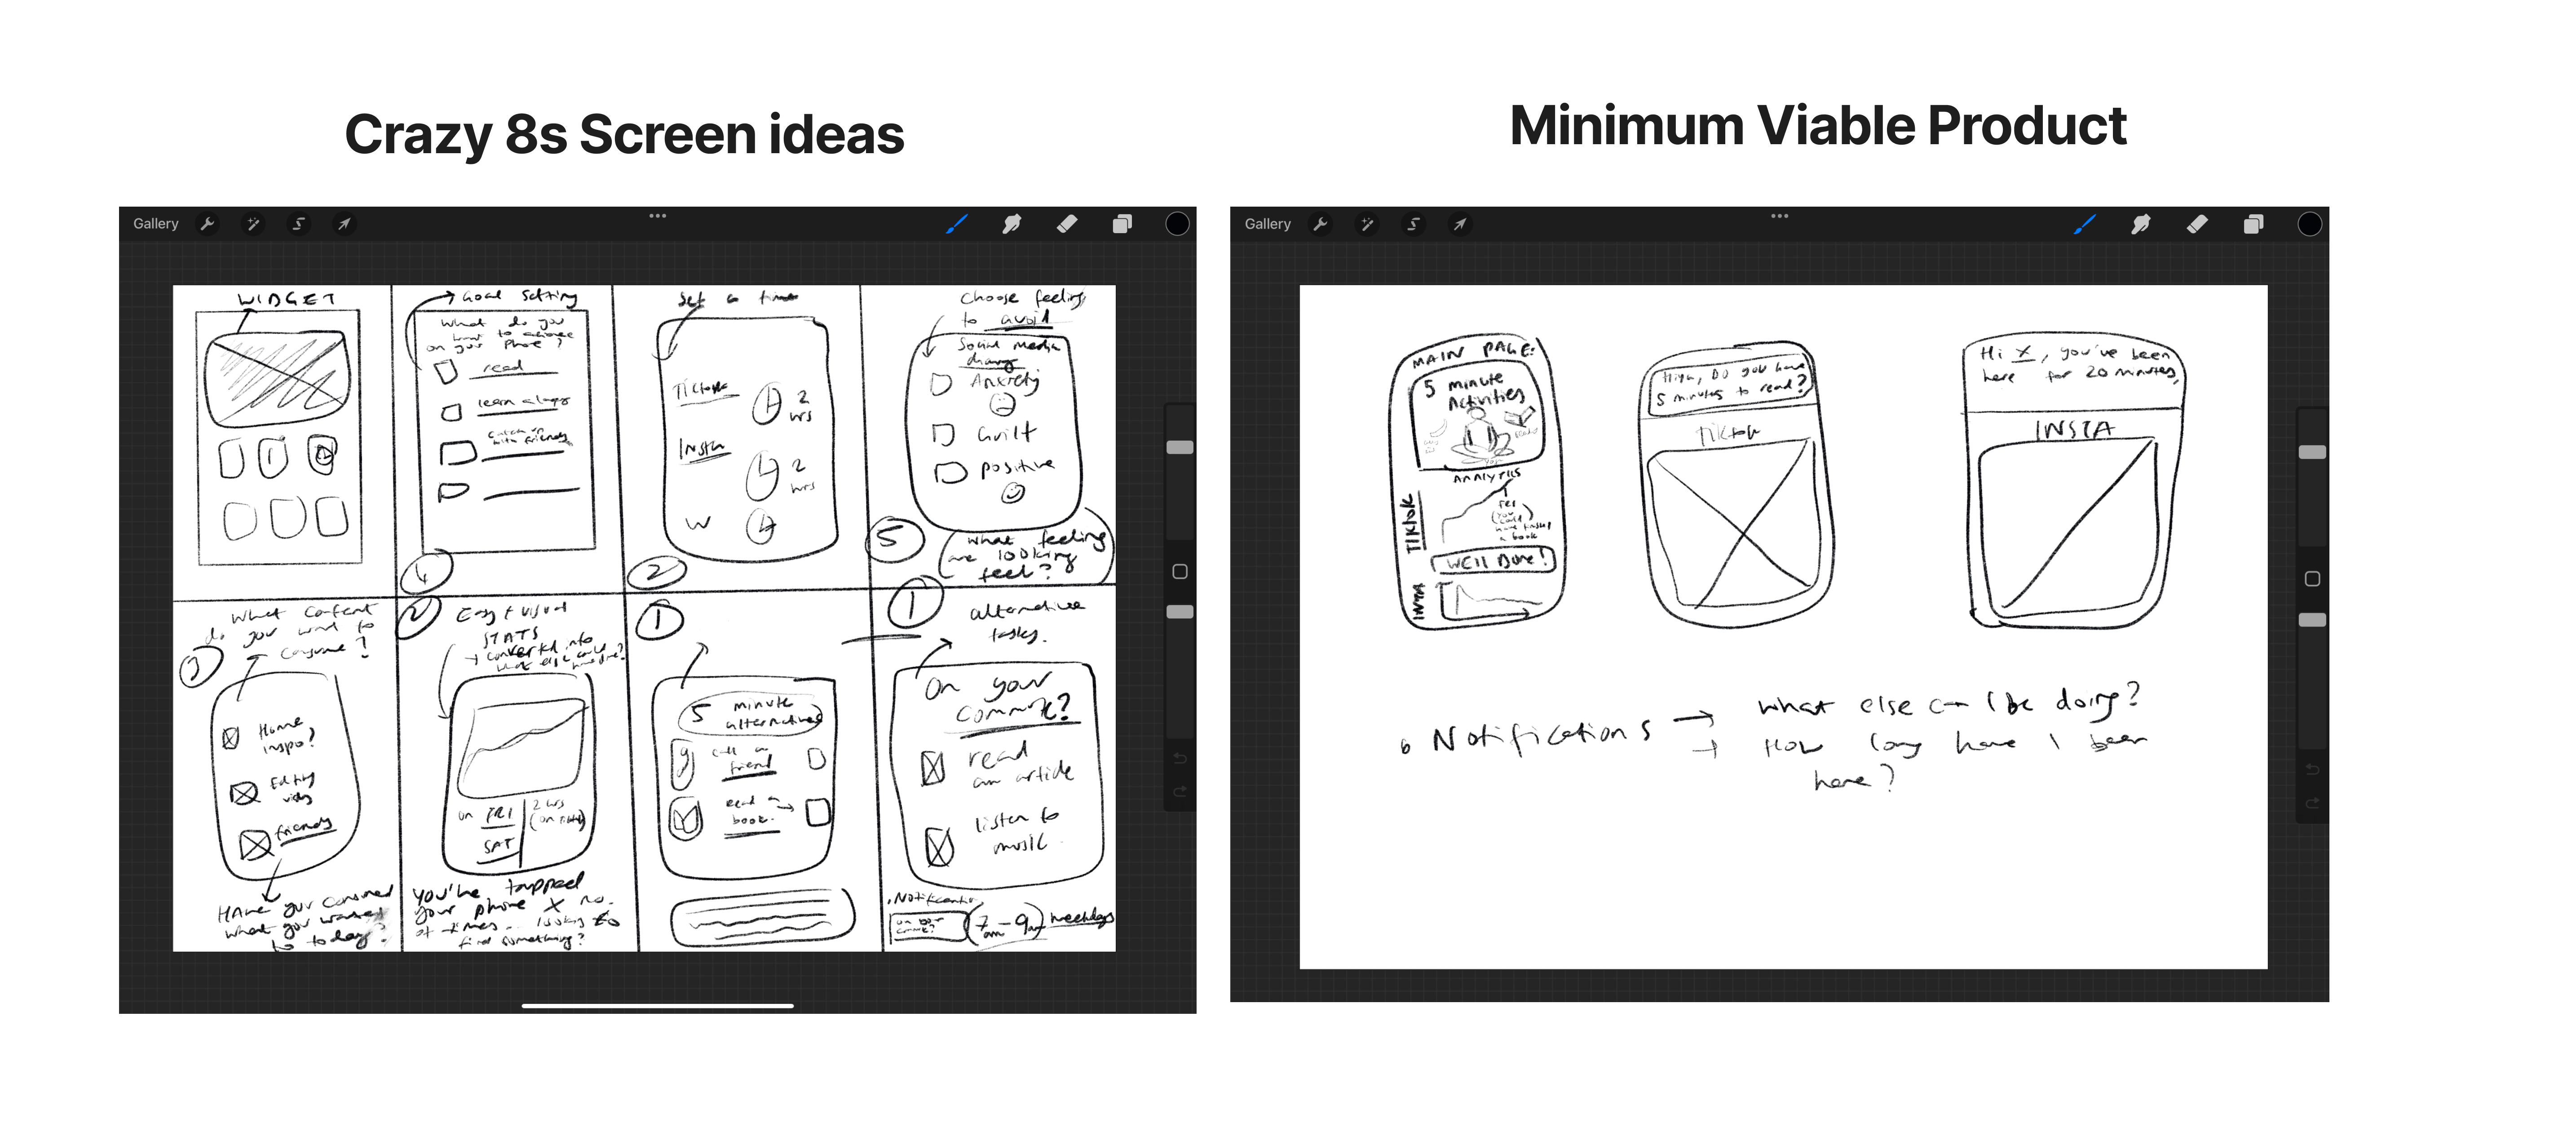 Crazy 8s Screen ideas
Minimum Viable Product
Gallery
WIDGET
Goal Setting
What do you
want to achieve
on your phone?
read
learn a
catch up
with friends
Set a time
Tictok
2
hrs
Insta
2
hrs
W
2
Choose feeling
to avoid
Social media
Anxiety
Guilt
positive
5
what feeling
are looking
feel?
What content
do you want to
consume?
3
Home
inspo?
Editing
vids
friends
Have you consumed
what you wanted
to today?
2
Easy + visual
STATS
→ converted into
what else could
on FRI
2 hrs
SAT
You've tapped
your phone X no.
of times... looking to
find something?
1
5 minute
alternatives
call a
friend
read a
book.
1
alternative
tasks.
On your
Commute?
read
an article
listen to
music
Notification
on your
commute?
7am - 9am weekdays
Gallery
MAIN PAGE:
5 minute
Activities
ANALYTICS
TIKTOK
WELL DONE!
INSTA
Hiya, Do you have
5 minutes to read?
Tiktok
Hi X, you've been
here for 20 minutes,
INSTA
Notifications → What else can I be doing?
→ How long have I been
here?